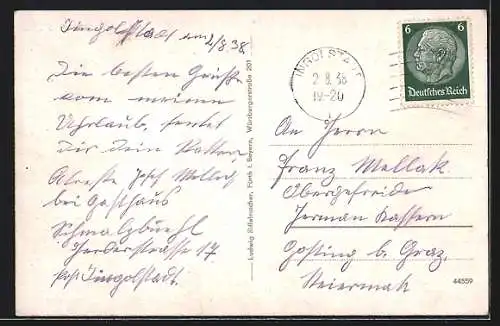 Ingolstadt am 2/8.38
Die besten Grüße
vom meinen
Uhrlaub, sendet
Dir Dein
Adreste Josef
bei Gasthaus
Schmalzbuckl
Herderstrasse 17
Ingolstadt.
Ludwig Riffelmacher, Fürth i. Bayern, Würzburgerstraße 201
INGOLSTADT
2.8.38
19-20
6 6
Deutsches Reich
An Herrn
Franz Mellak
Obergefreide
Herman Kassern
Gösting b. Graz
Steiermak
44559